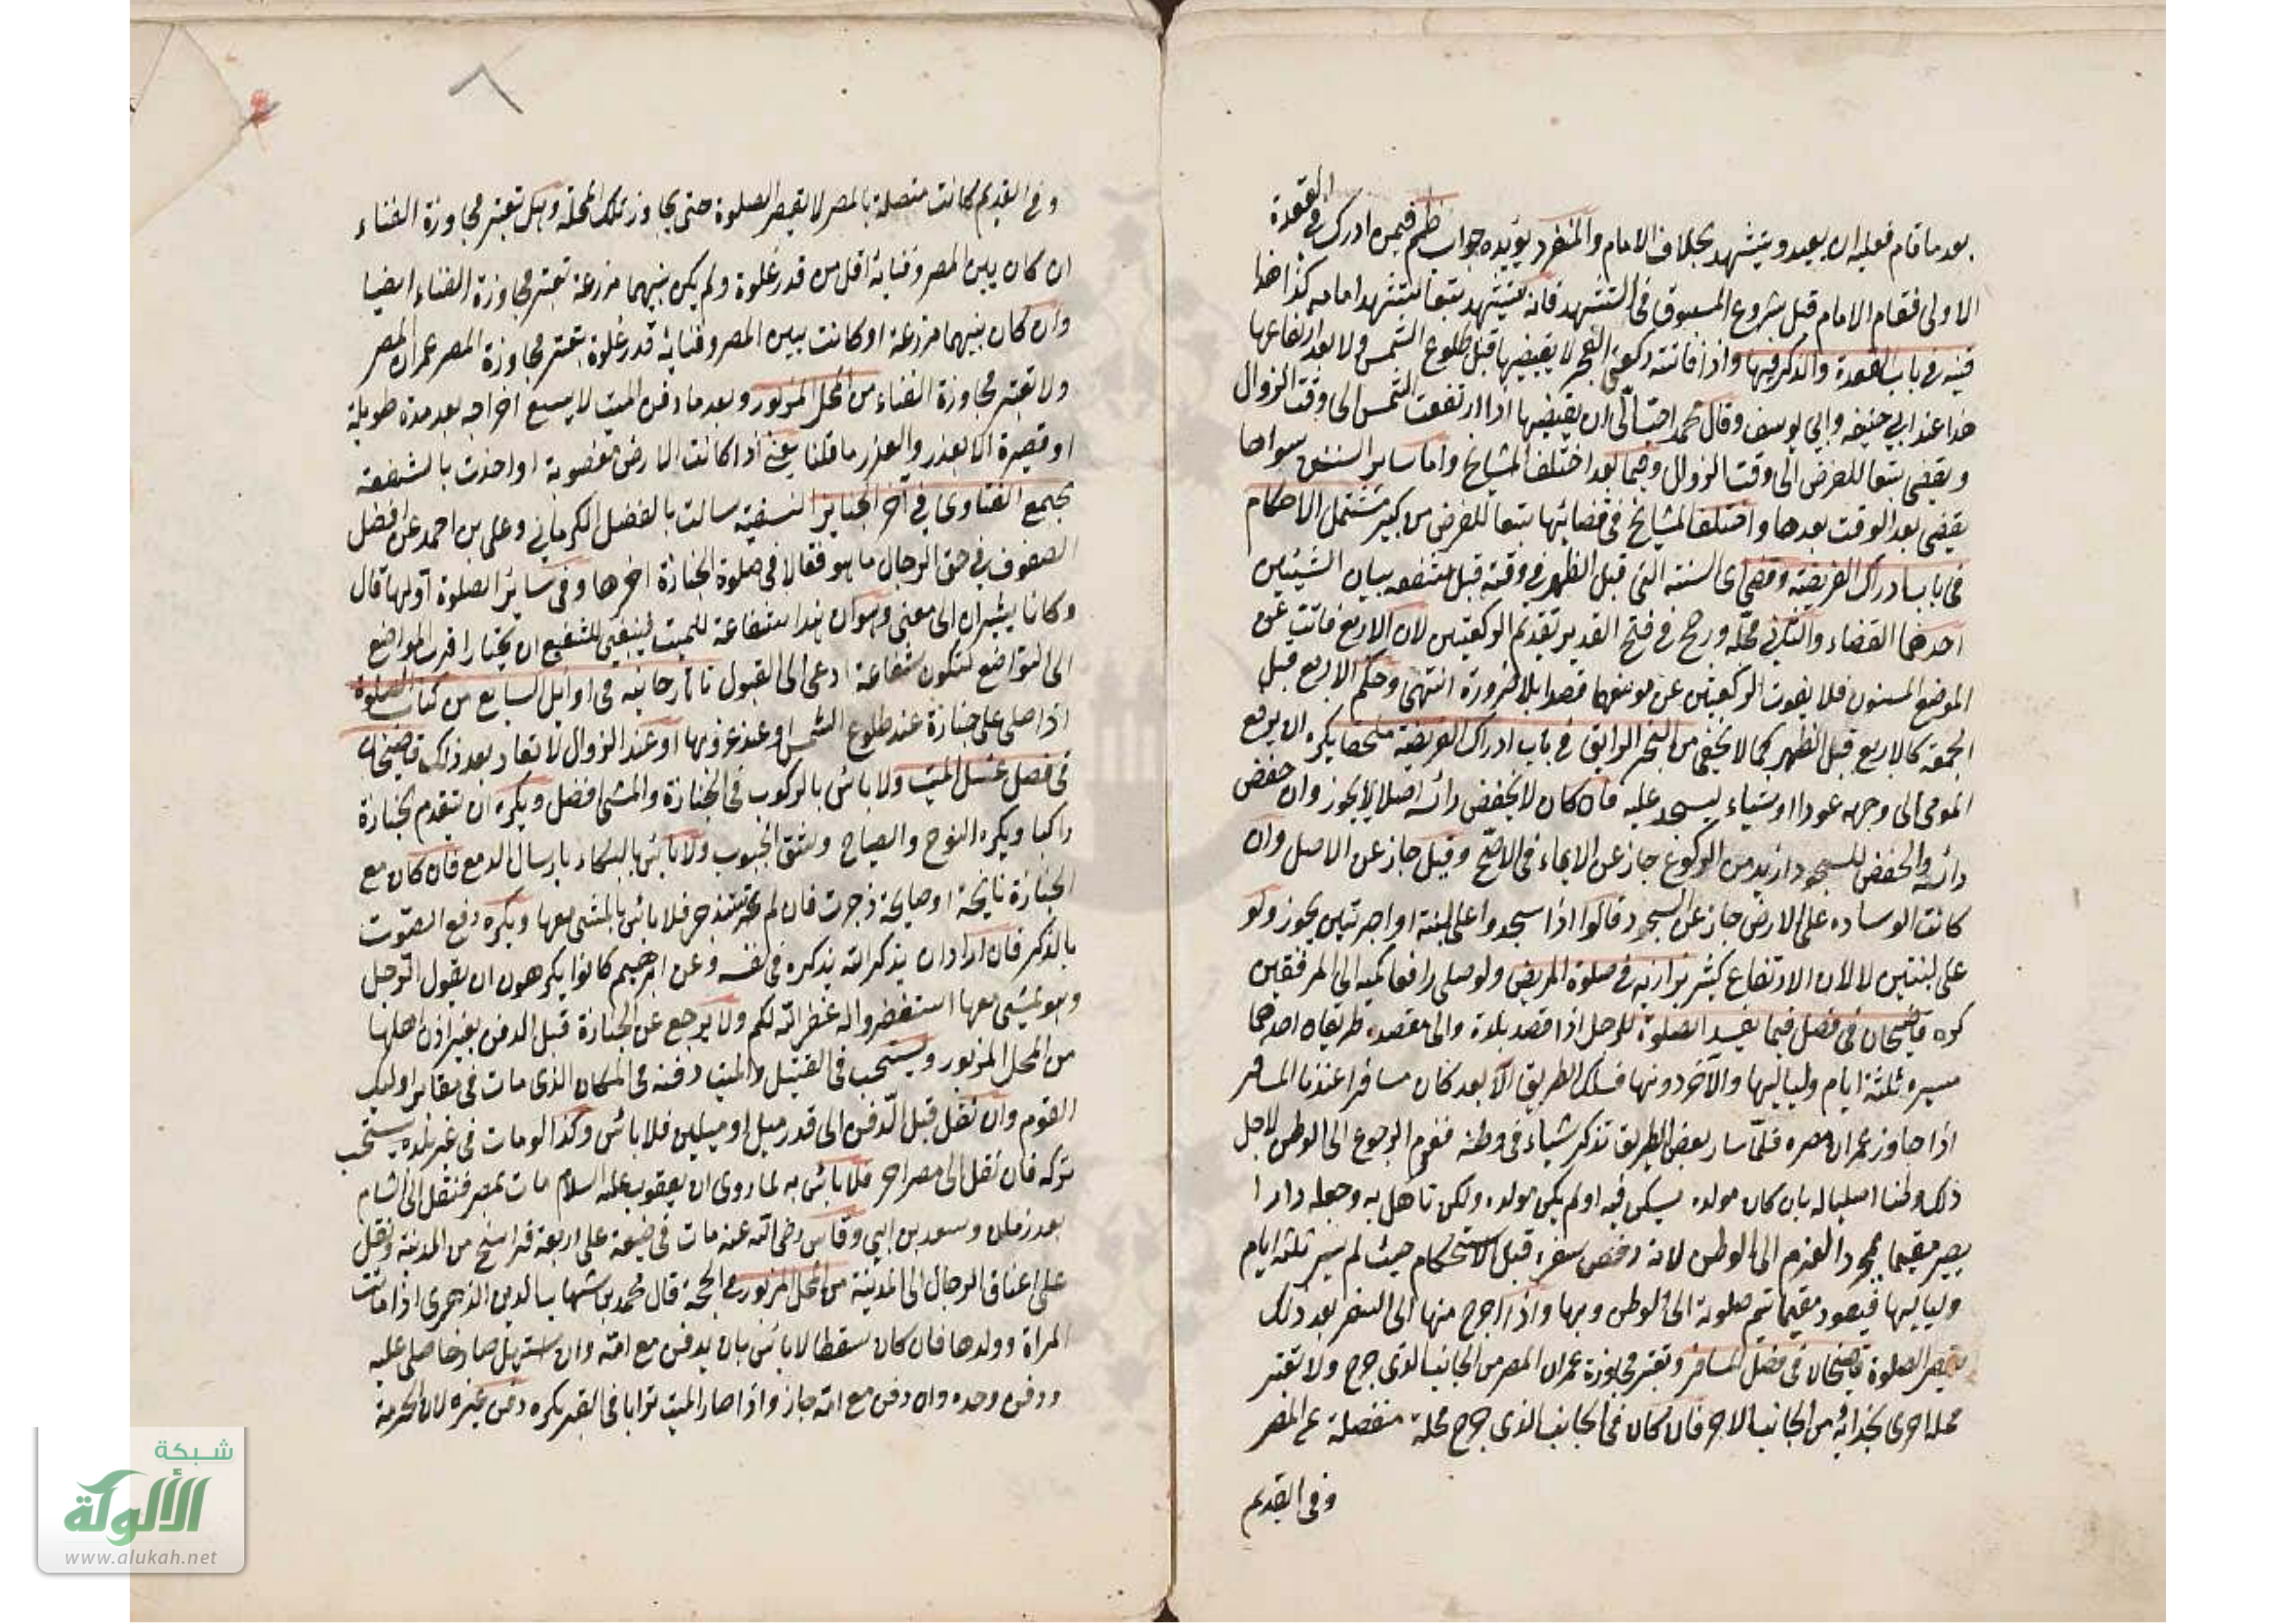 القعدة
بعد ما قام فعليه ان يعيد ويتشهد بخلاف الامام والمنفرد يؤيده جواب ظم فيمن ادرك في
الاولى فقام الامام قبل شروع المسبوق في التشهد فانه يتشهد تبعا لتشهد امامه كذا هذا
قنيه في باب القعدة والذكر فيها واذا فاتته ركعتي الفجر لا يقضيها قبل طلوع الشمس ولا بعد ارتفاعها
هذا عند ابي حنيفه وابي يوسف وقال محمد احب الي ان يقضيها اذا ارتفعت الشمس الى وقت الزوال
ويقضى تبعا للفرض الى وقت الزوال وفيما بعد اختلف المشايخ واما ساير السنن سواها
يقضى بعد الوقت بعدها واختلف المشايخ في قضائها تبعا للفرض من كبير مشتمل الاحكام
في باب ادراك الفريضة وقضى اى السنة التي قبل الظهر في وقته قبل شفعه بيان الشيئين
احدهما القضاء والثاني محله ورجح في فتح القدير تقديم الركعتين لان الاربع فاتت عن
الموضع المسنون فلا يفوت الركعتين عن موضعهما قصدا بلا ضرورة انتهى وحكم الاربع قبل
الجمعة كالاربع قبل الظهر كما لا يخفى من البحر الرايق في باب ادراك الفريضة ملخصا يكره ان يرفع
المومى الى وجهه عودا او شياء ليسجد عليه فان كان لا يخفض رائسه اصلا لا يجوز وان خفض
رائسه والخفض للسجود ازيد من الركوع جاز عن الايماء في الاصح وقيل جاز عن الاصل وان
كانت الوسادة على الارض جاز عن السجود قالوا اذا سجد واعلى لبنة او اجرتين يجوز ولو
على لبنتين لا لان الارتفاع كثير بزازيه في صلوة المريض ولو صلى رافعا كميه الى المرفقين
كره قاضيخان في فصل فيما يفسد الصلوة للرجل اذا قصد بلدة والى مقصده طريقان احدهما
مسيرة ثلثة ايام ولياليها والآخر دونها فسلك الطريق الابعد كان مسافرا عندنا المسافر
اذا جاوز عمران مصره فلما سار بعض الطريق تذكر شياء في وطنه فعزم الرجوع الى الوطن لاجل
ذلك وطنا اصليا له بان كان مولده يسكن فيه او لم يكن مولده ولكن تاهل به وجعله دارا
يصير مقيما بمجرد العزم الى الوطن لانه رفض سفره قبل الاستحكام حيث لم يسر ثلثة ايام
ولياليها فيعود مقيما تتم صلوته الى الوطن وبها واذا اخرج منها الى السفر بعد ذلك
يقصر الصلوة قاضيخان في فصل المسافر وتعتبر مجاوزة عمران المصر من الجانب الذى خرج ولا تعتبر
محلة اخرى بحذائه من الجانب الاخر فان كان في الجانب الذى خرج محلة منفصلة عن المصر
وفى القديم
وفي القديم كانت متصلة بالمصر لا يقصر الصلوة حتى يجاوز تلك المحلة وهل تعتبر مجاوزة الفناء
ان كان بين المصر وفنائه اقل من قدر غلوة ولم يكن بينهما مزرعة تعتبر مجاوزة الفناء ايضا
وان كان بينهما مزرعة او كانت بين المصر وفنائه قدر غلوة يعتبر مجاوزة المصر عمران المصر
ولا تعتبر مجاوزة الفناء من المحل المزبور وبعد ما دفن الميت لا يسع اخراجه بعد مدة طويلة
او قصيرة الا بعذر والعذر ما قلنا يعني اذا كانت الارض مغصوبة او اخذت بالشفعة
مجمع الفتاوى في آخر الجنايز النسفية سالت بالفضل الكرماني وعلى بن احمد عن افضل
الصفوف في حق الرجال ما هو فقالا في صلوة الجنازة اخرها وفى سائر الصلوة اولها قال
وكانا يشيران الى معنى وهو ان هذا شفاعة للميت فينبغي للشفيع ان يختار اقرب المواضع
الى التواضع لتكون شفاعة ادعى الى القبول تاتارخانيه في اوايل السابع من كتاب الصلوة
اذا صلى على جنازة عند طلوع الشمس او عند غروبها او عند الزوال لا تعاد بعد ذلك قاضيخان
في فصل غسل الميت ولا بائس بالركوب في الجنازة والمشى افضل ويكره ان يتقدم الجنازة
راكبا ويكره النوح والصياح وشق الجيوب ولا بائس بالبكاء بارسال الدمع فان كان مع
الجنازة نايحة او صايحة زجرت فان لم تنزجر فلا بائس بالمشى معها ويكره رفع الصوت
بالذكر فان اراد ان يذكر الله يذكره في نفسه وعن ابرهيم كانوا يكرهون ان يقول الرجل
وهو يمشى معها استغفروا له غفر الله لكم ولا يرجع عن الجنازة قبل الدفن بغير اذن اهلها
من المحل المزبور ويستحب في القتيل والميت دفنه في المكان الذى مات في مقابر اوليك
القوم وان نقل قبل الدفن الى قدر ميل او ميلين فلا بائس وكذا لو مات في غير بلده يستحب
تركه فان نقل الى مصر اخر فلا بائس به لما روى ان يعقوب عليه السلام مات بمصر فنقل الى الشام
بعد زمان وسعد بن ابي وقاس رضى الله عنه مات في ضيعة على اربعة فراسخ من المدينة ونقل
على اعناق الرجال الى المدينة من المحل المزبور في الحجة قال محمد بن شهاب الدين الزهرى اذا ماتت
المراة وولدها فان كان سقطا لا بائس بان يدفن مع امه وان استهل صارخا صلى عليه
ودفن وحده وان دفن مع امه جاز واذا صار الميت ترابا في القبر يكره دفن غيره لان الحرمة
شبكة
الألوكة
www.alukah.net